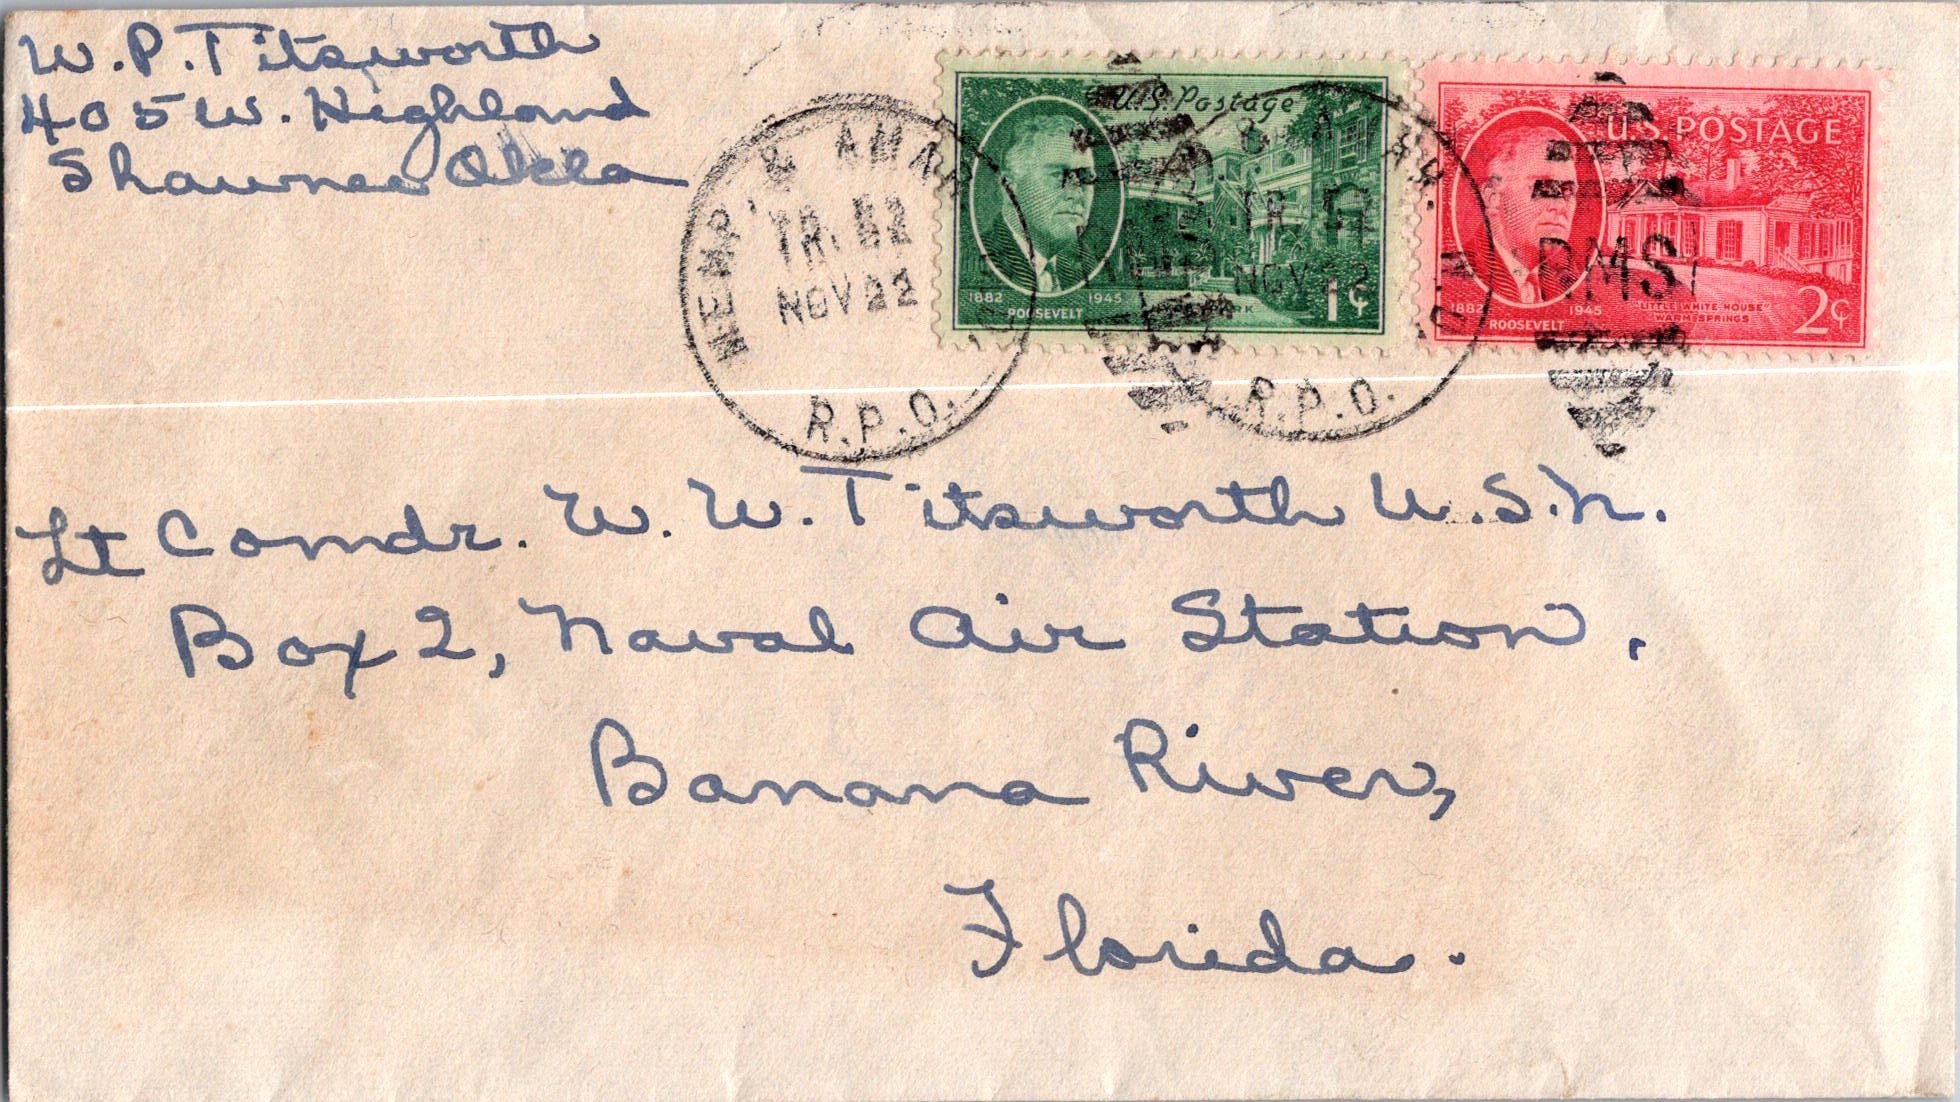 W. P. Titsworth
405 W. Highland
Shawnee Okla
MEMP. & AMAR
TR. 52
NOV 22
R.P.O.
U.S. Postage
1882 1945
ROOSEVELT
1¢
TR 52
NOV 22
R.P.O.
U.S. POSTAGE
RMS
1882 1945
ROOSEVELT
"LITTLE WHITE HOUSE"
WARM SPRINGS
2¢
Lt Comdr. W. W. Titsworth U.S.N.
Box 2, Naval Air Station,
Banana River,
Florida.